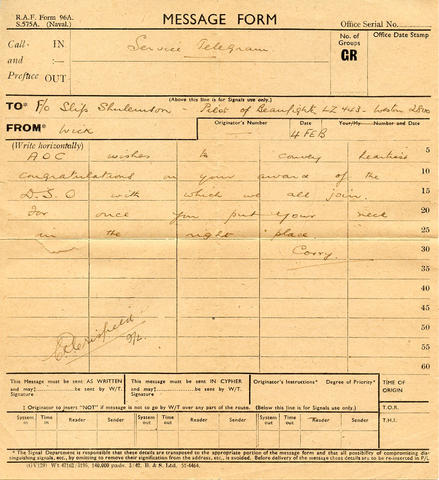 R.A.F. Form 96A.
S.575A. (Naval.)
MESSAGE FORM
Office Serial No.
Call- IN
and :—
Preface OUT
Service Telegram
No. of Groups
GR
Office Date Stamp
(Above this line is for Signals use only.)
TO* F/O Slip Shulemson – Pilot of Beaufighter LZ 443 – Weston 2800
FROM* Wick
Originator's Number
Date
4 FEB
Your/My Number and Date
(Write horizontally)
AOC wishes to convey heartiest 5
congratulations on your award of the 10
D.S.O with which we all join. 15
For once you put your neck 20
in the right place. 25
Corry. 30
35
40
45
50
F/L. 55
60
This Message must be sent AS WRITTEN
and may‡ be sent by W/T.
Signature
This message must be sent IN CYPHER
and may‡ be sent by W/T.
Signature
Originator's Instructions* Degree of Priority*
TIME OF
ORIGIN
‡ Originator to insert "NOT" if message is not to go by W/T over any part of the route. (Below this line is for Signals use only.)
T.O.R.
System in Time in Reader Sender System out Time out Reader Sender System out Time out Reader Sender
T.H.I.
* The Signal Department is responsible that these details are transposed to the appropriate portion of the message form and that all possibility of compromising distinguishing signals, etc., by omitting to remove their signification from the address, etc., is avoided. Before delivery of the message these details are to be re-inserted in P/L
B. & S. Ltd. 51-4464.